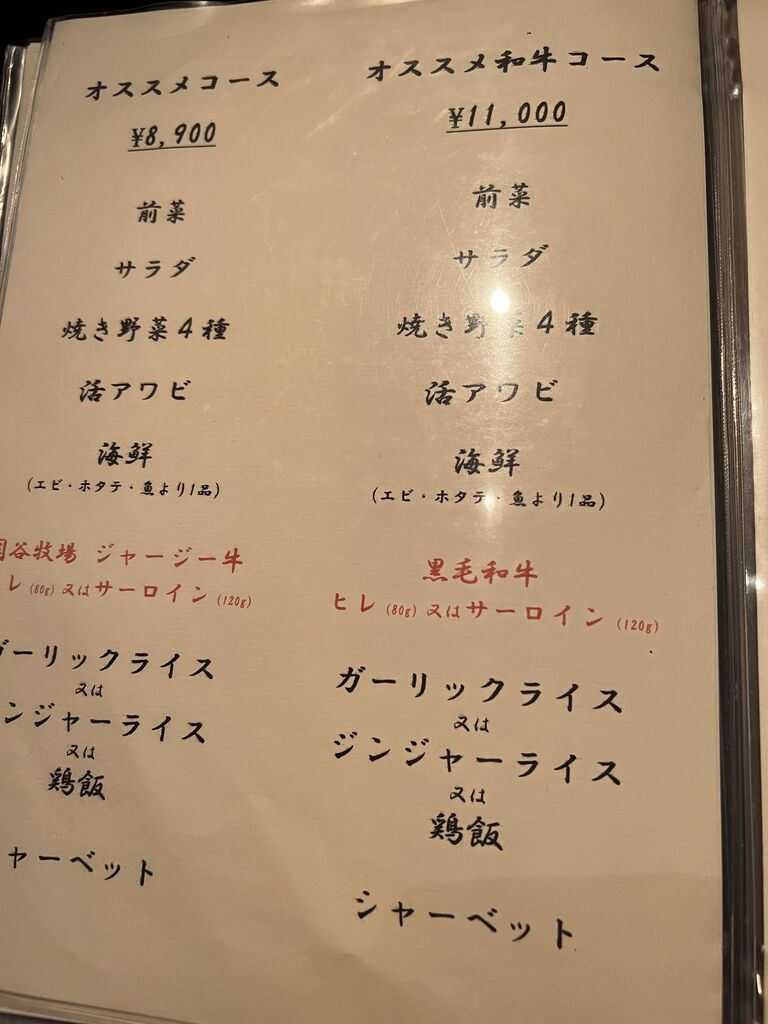 オススメコース
¥8,900
前菜
サラダ
焼き野菜4種
活アワビ
海鮮
(エビ・ホタテ・魚より1品)
谷牧場 ジャージー牛
レ (80g) 又はサーロイン (120g)
ガーリックライス
又は
ンジャーライス
又は
鶏飯
ャーベット
オススメ和牛コース
¥11,000
前菜
サラダ
焼き野菜4種
活アワビ
海鮮
(エビ・ホタテ・魚より1品)
黒毛和牛
ヒレ (80g) 又はサーロイン (120g)
ガーリックライス
又は
ジンジャーライス
又は
鶏飯
シャーベット